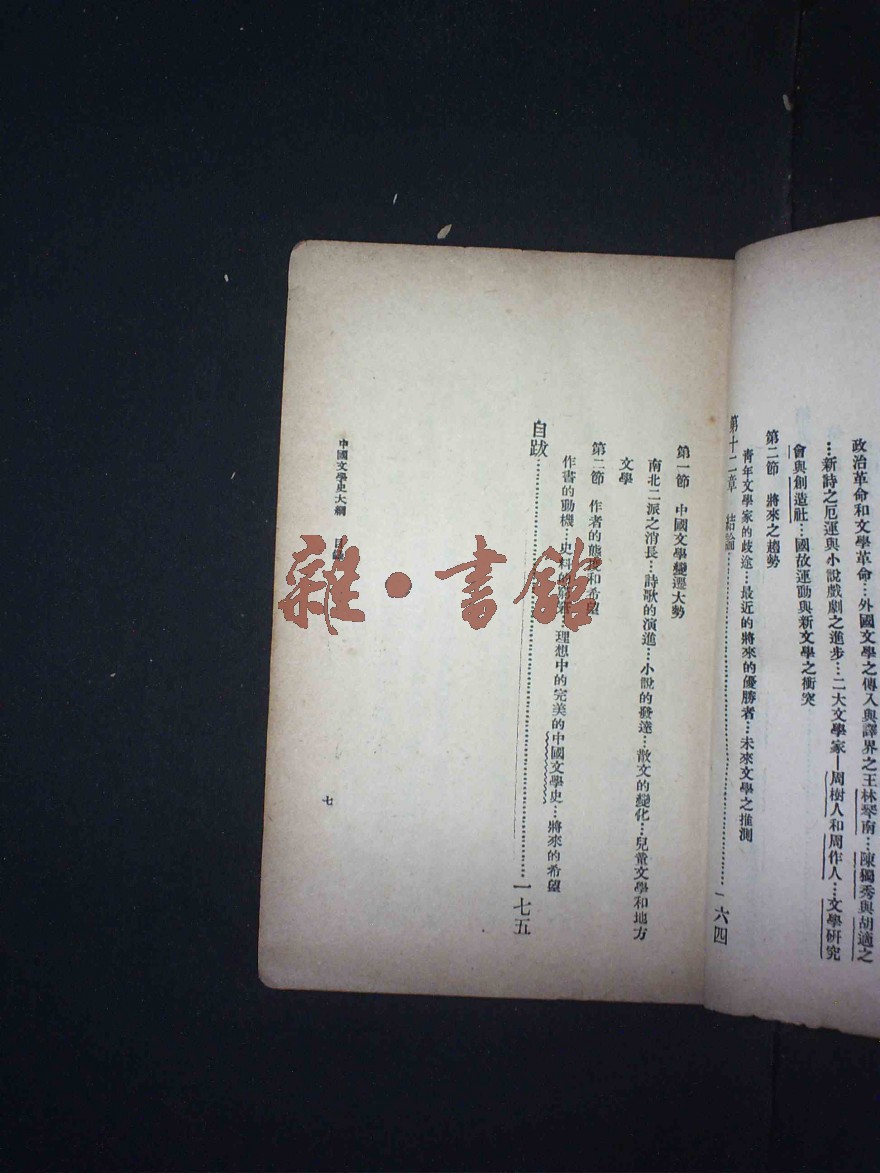 政治革命和文學革命…外國文學之傳入與譯界之王林琴南…陳獨秀與胡適之
…新詩之厄運與小說戲劇之進步…二大文學家—周樹人和周作人…文學研究
會與創造社…國故運動與新文學之衝突
第二節 將來之趨勢
青年文學家的歧途…最近的將來的優勝者…未來文學之推測
第十二章 結論…一六四
第一節 中國文學變遷大勢
南北二派之消長…詩歌的演進…小說的發達…散文的變化…兒童文學和地方
文學
第二節 作者的態度和希望
作書的動機…史料的…理想中的完美的中國文學史…將來的希望
自跋…一七五
中國文學史大綱 目錄
七
雜·書館